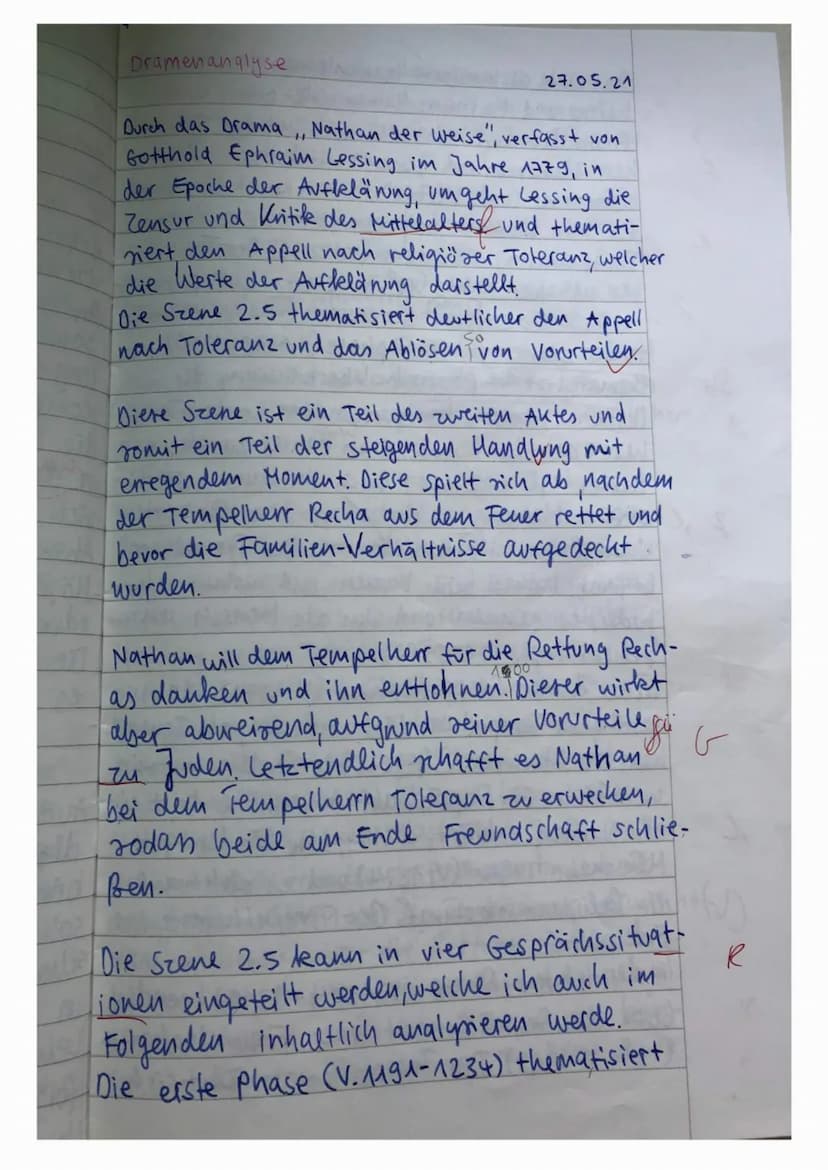 Dramenanalyse
27.05.21
Durch das Drama „Nathan der Weise", verfasst von
Gotthold Ephraim Lessing im Jahre 1779, in
der Epoche der Aufklärung, umgeht Lessing die
Zensur und Kritik des Mittelalters und themati-
siert den Appell nach religiöser Toleranz, welcher
die Werte der Aufklärung darstellt.
Die Szene 2.5 thematisiert deutlicher den Appell
nach Toleranz und das Ablösen so von Vorurteilen.
Diese Szene ist ein Teil des zweiten Aktes und
somit ein Teil der steigenden Handlung mit
erregendem Moment. Diese spielt sich ab, nachdem
der Tempelherr Recha aus dem Feuer rettet und
bevor die Familien-Verhältnisse aufgedeckt
wurden.
Nathan will dem Tempelherr für die Rettung Rech-
as danken und ihn entlohnen. Dieser wirkt
aber abweisend, aufgrund seiner Vorurteile
zu Juden. Letztendlich schafft es Nathan
G
bei dem Tempelherrn Toleranz zu erwecken,
sodass beide am Ende Freundschaft schlie-
ßen.
Die Szene 2.5 kann in vier Gesprächssituat-
R
ionen eingeteilt werden, welche ich auch im
Folgenden inhaltlich analysieren werde.
Die erste Phase (V.1191-1234) thematisiert